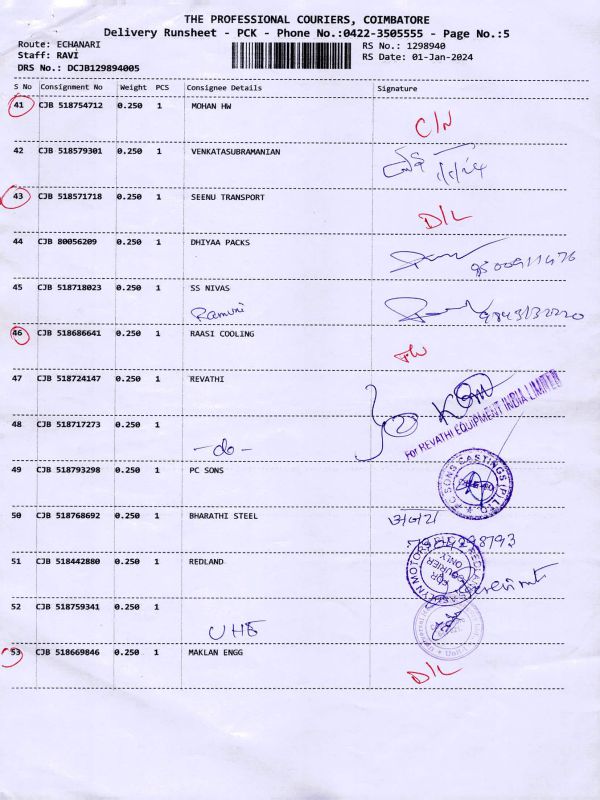 THE PROFESSIONAL COURIERS, COIMBATORE
Delivery Runsheet - PCK - Phone No.:0422-3505555 - Page No.:5
Route: ECHANARI
RS No.: 1298940
Staff: RAVI
RS Date: 01-Jan-2024
DRS No.: DCJB129894005
S No Consignment No Weight PCS Consignee Details Signature
41 CJB 518754712 0.250 1 MOHAN HW
C/N
42 CJB 518579301 0.250 1 VENKATASUBRAMANIAN
43 CJB 518571718 0.250 1 SEENU TRANSPORT
D/L
44 CJB 80056209 0.250 1 DHIYAA PACKS
45 CJB 518718023 0.250 1 SS NIVAS
46 CJB 518686641 0.250 1 RAASI COOLING
47 CJB 518724147 0.250 1 REVATHI
For REVATHI EQUIPMENT INDIA LIMITED
48 CJB 518717273 0.250 1
- do -
49 CJB 518793298 0.250 1 PC SONS
50 CJB 518768692 0.250 1 BHARATHI STEEL
51 CJB 518442880 0.250 1 REDLAND
52 CJB 518759341 0.250 1
53 CJB 518669846 0.250 1 MAKLAN ENGG
D/L